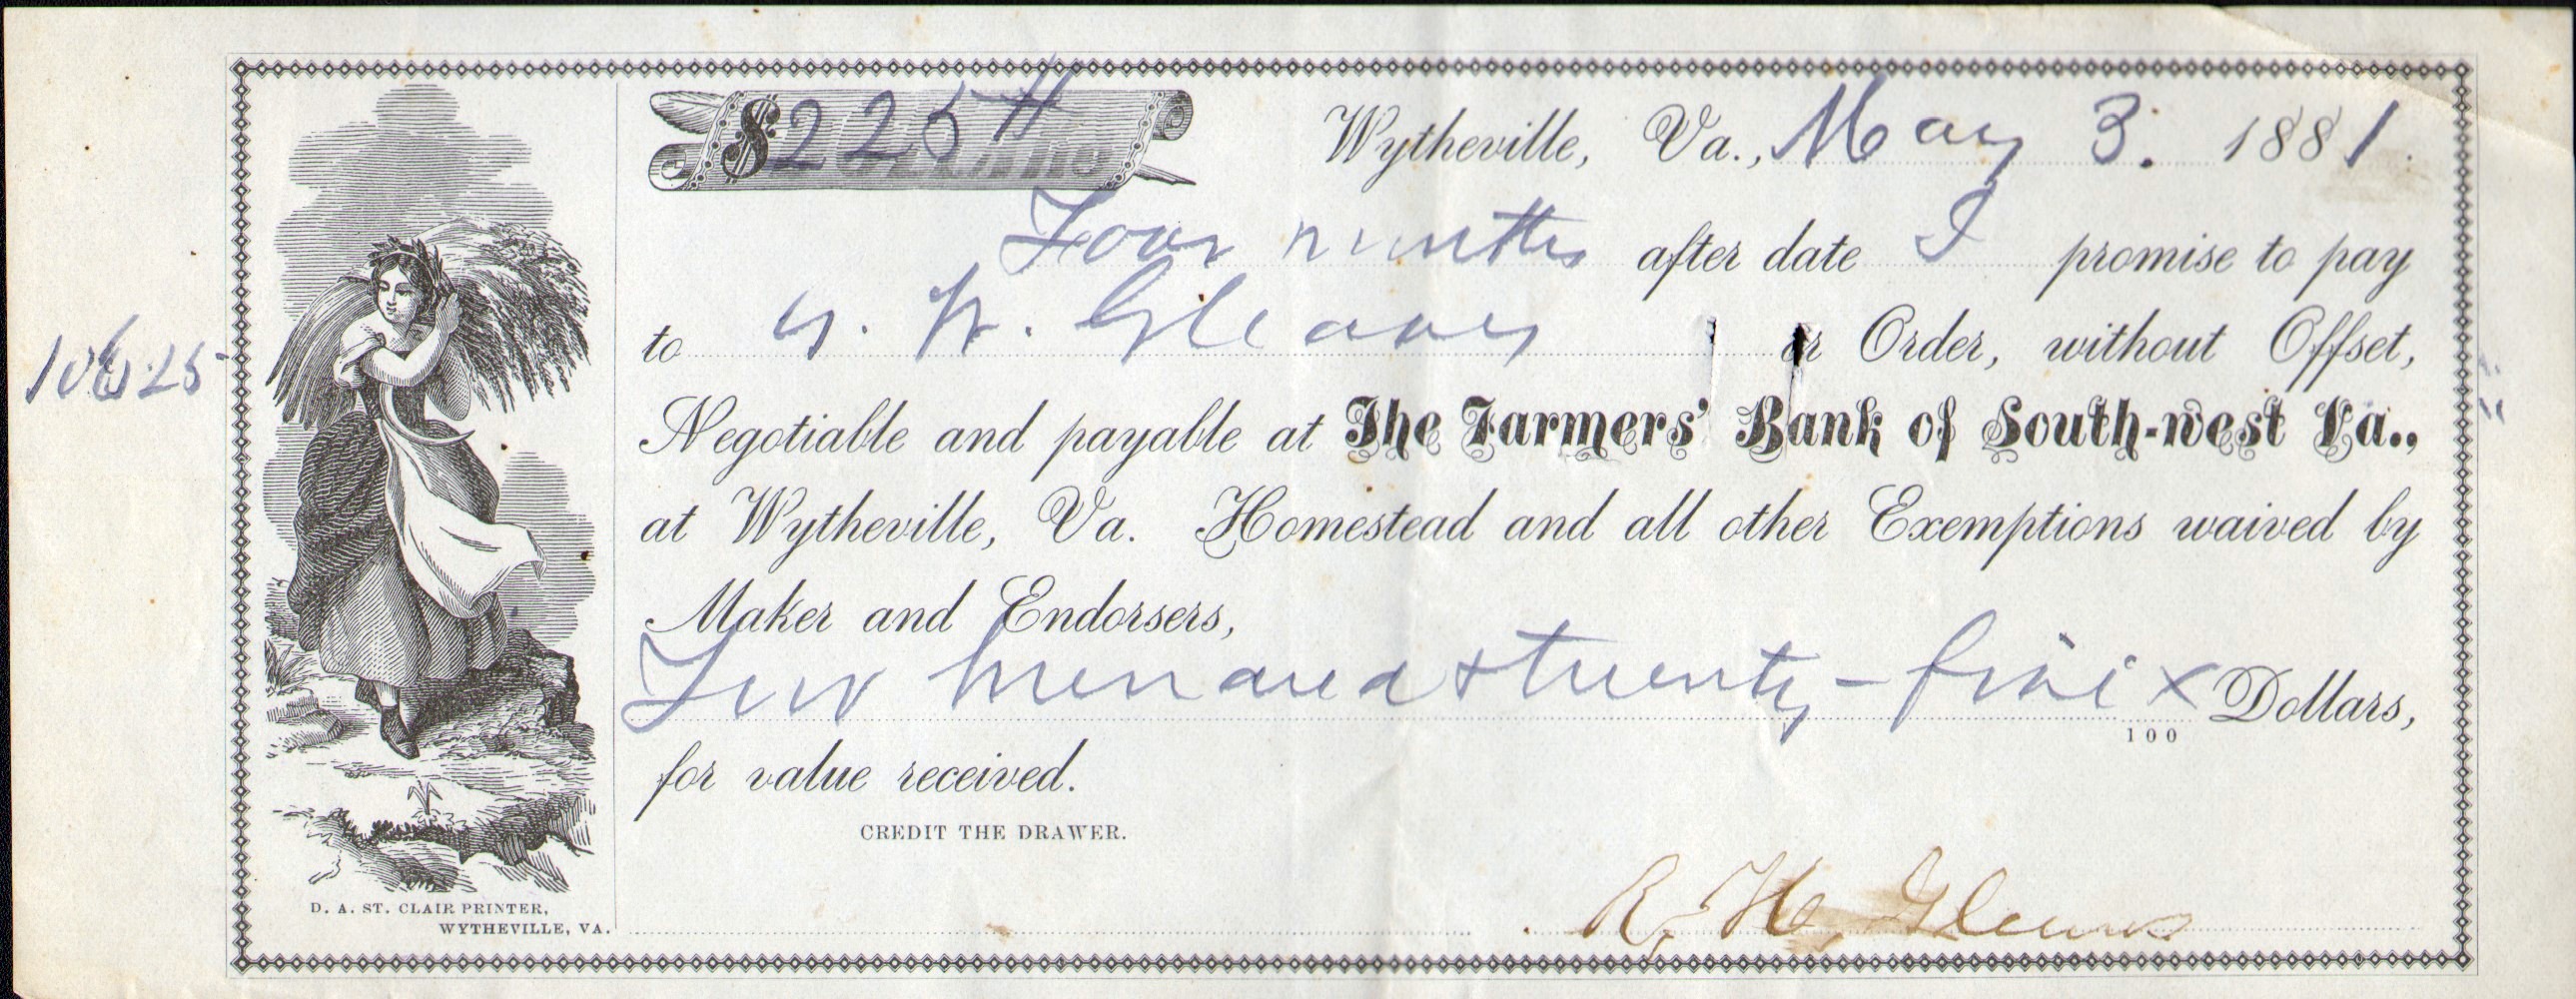 $225 Wytheville, Va., May 3. 1881.
Four months after date I promise to pay
to S. W. Gleaves or Order, without Offset,
10625
Negotiable and payable at The Farmers' Bank of South-west Va.,
at Wytheville, Va. Homestead and all other Exemptions waived by
Maker and Endorsers,
Two hundred & twenty-five x Dollars,
100
for value received.
CREDIT THE DRAWER.
D. A. ST. CLAIR PRINTER,
WYTHEVILLE, VA.
R. H. Gleaves